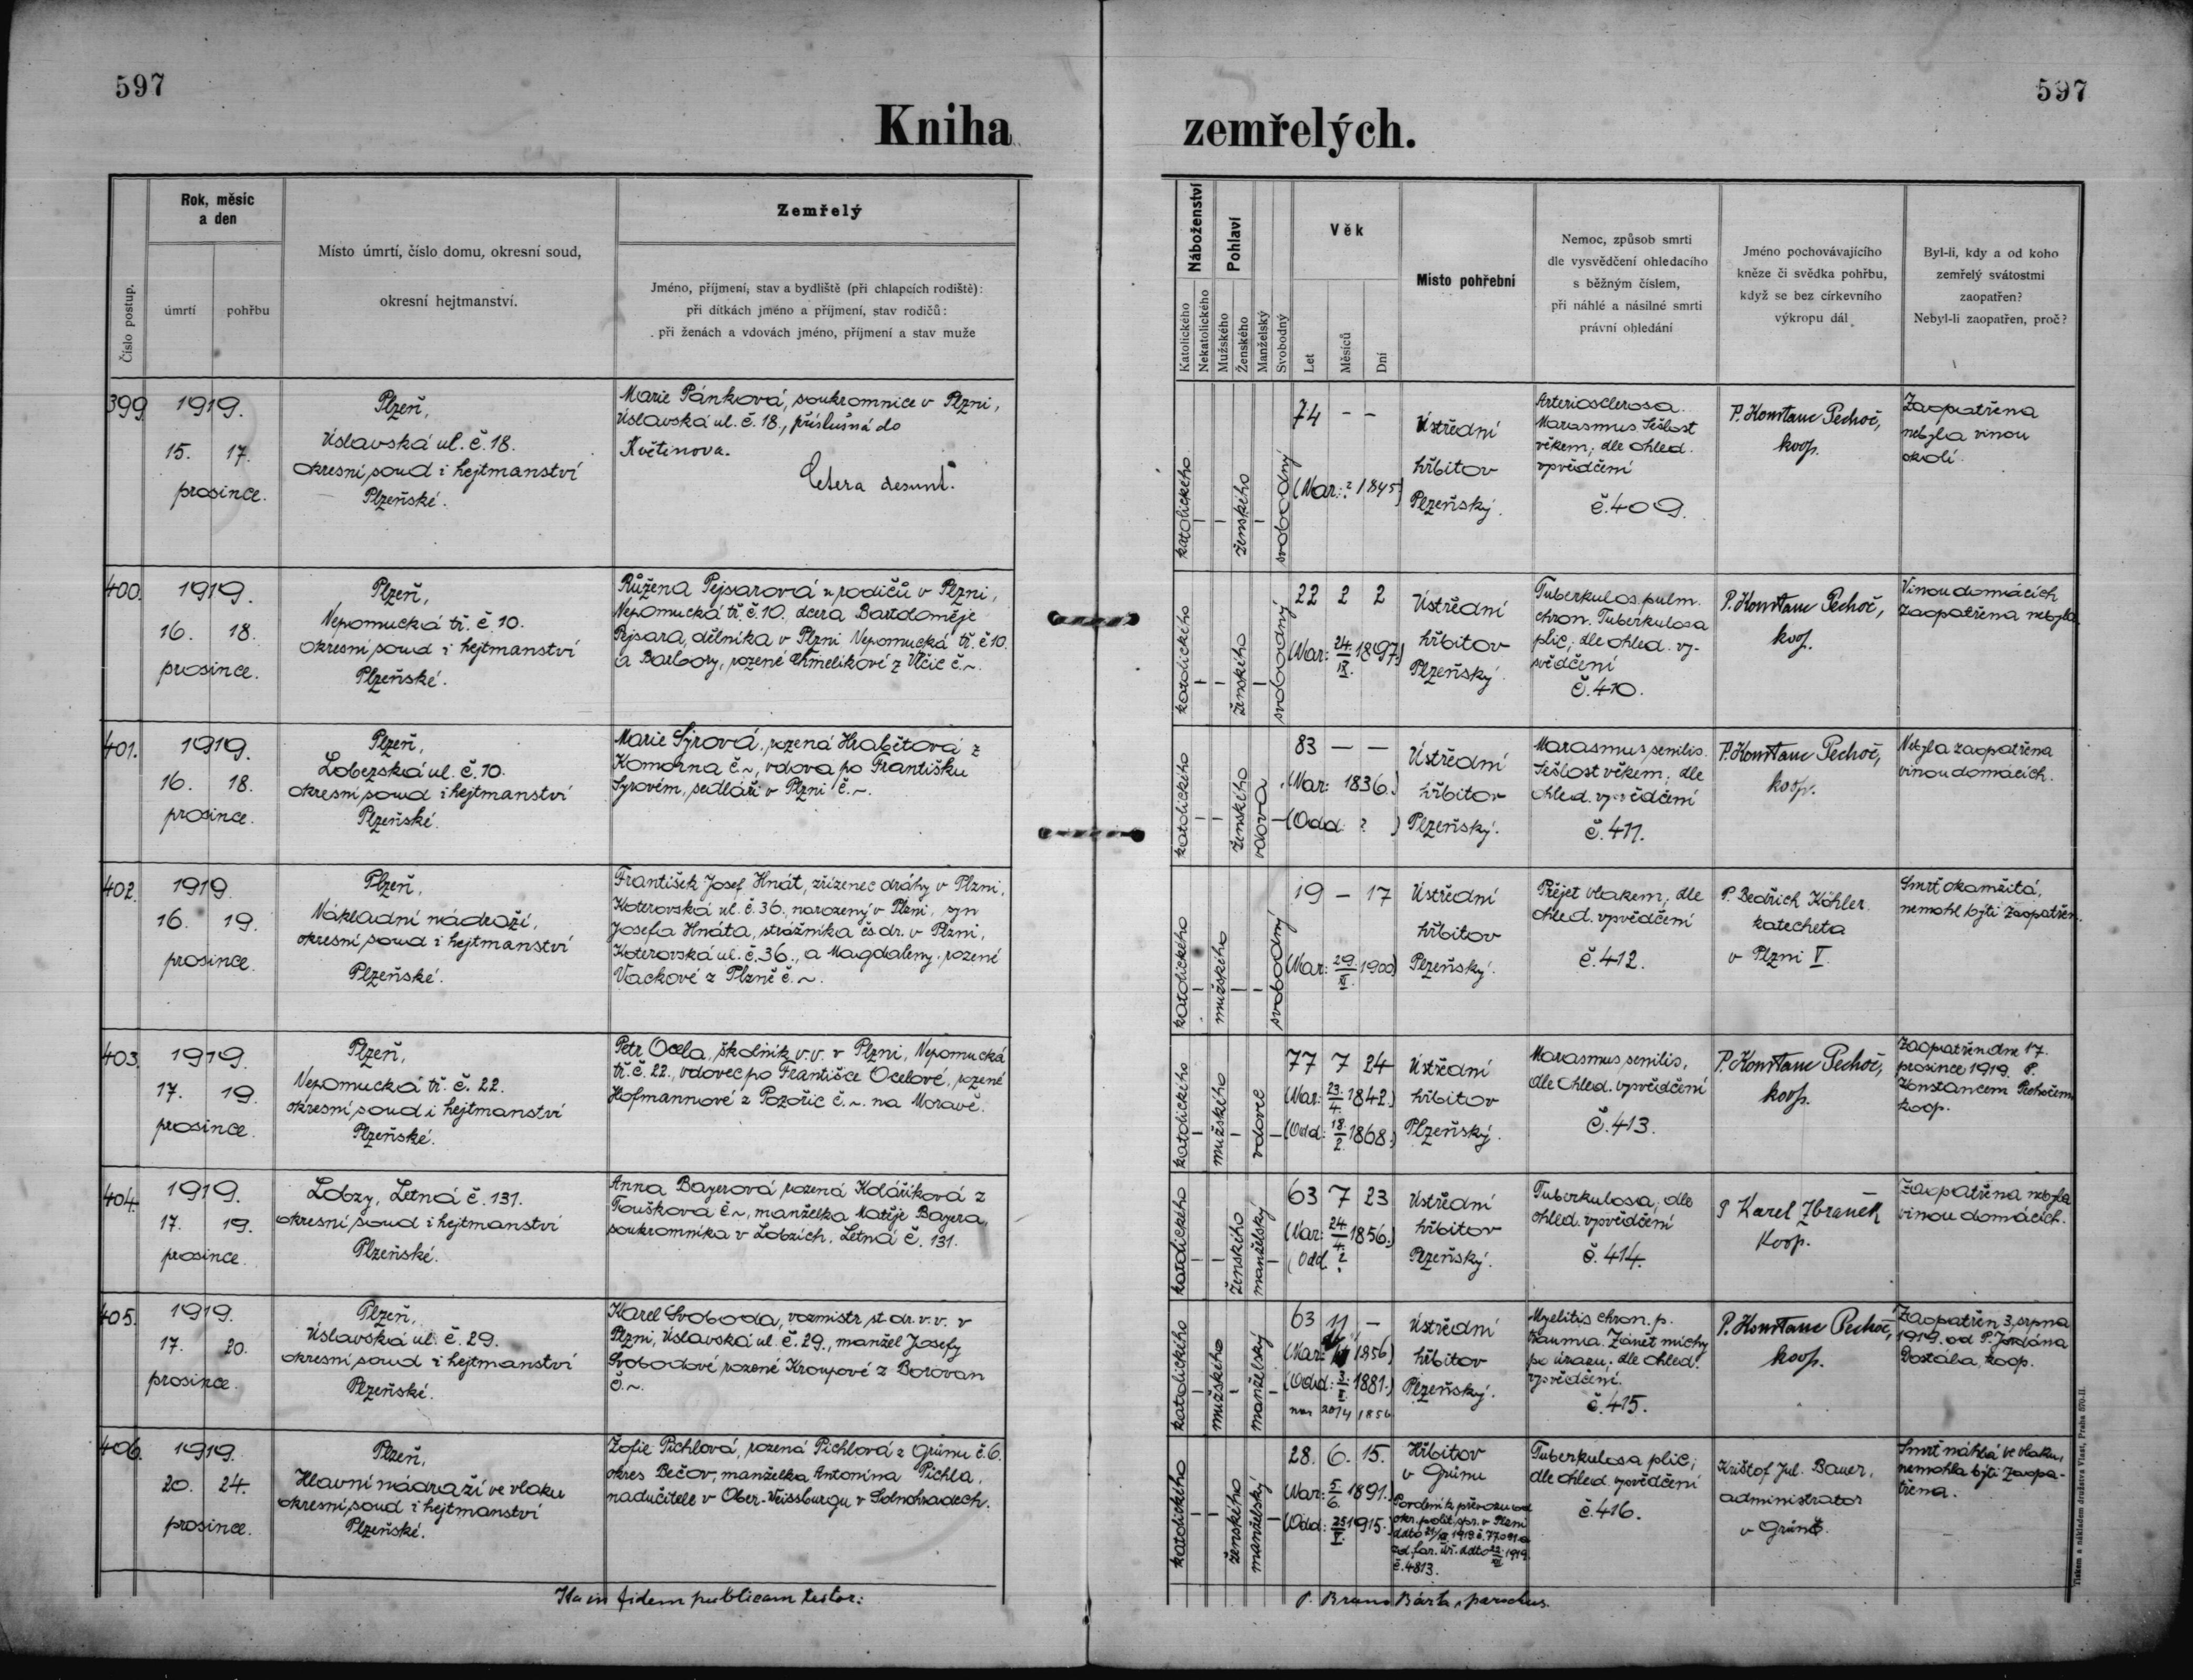 597
597
Kniha zemřelých.
Číslo postup.
Rok, měsíc
a den
úmrtí
pohřbu
Místo úmrtí, číslo domu, okresní soud,
okresní hejtmanství.
Zemřelý
Jméno, příjmení, stav a bydliště (při chlapcích rodiště):
při dítkách jméno a příjmení, stav rodičů:
při ženách a vdovách jméno, příjmení a stav muže
Náboženství
Katolického
Nekatolického
Pohlaví
Mužského
Ženského
Manželský
Svobodný
Věk
Let
Měsíců
Dní
Místo pohřební
Nemoc, způsob smrti
dle vysvědčení ohledacího
s běžným číslem,
při náhlé a násilné smrti
právní ohledání
Jméno pochovávajícího
kněze či svědka pohřbu,
když se bez církevního
výkropu dál
Byl-li, kdy a od koho
zemřelý svátostmi
zaopatřen?
Nebyl-li zaopatřen, proč?
399
1919.
15. 17.
prosince.
Plzeň,
Úslavská ul. č. 18.
okresní soud i hejtmanství
Plzeňské.
Marie Pánková, soukromnice v Plzni,
Úslavská ul. č. 18., příslušná do
Květinova.
Cetera desunt.
katolického
– –
ženského
–
svobodný
74 – –
(Nar: ? 1845)
Ústřední
hřbitov
Plzeňský.
Arteriosclerosa.
Marasmus Sešlost
věkem, dle ohled.
vysvědčení
č. 409.
P. Konstanc Pechoč,
koop.
Zaopatřena
nebyla vinou
okolí.
400.
1919.
16. 18.
prosince.
Plzeň,
Nepomucká tř. č. 10.
okresní soud i hejtmanství
Plzeňské.
Růžena Pejsarová u rodičů v Plzni,
Nepomucká tř. č. 10., dcera Bartoloměje
Pejsara, dělníka v Plzni Nepomucká tř. č. 10.
a Barbory, rozené Chmelíkové z Vlčic č. ~.
katolického
– –
ženského
–
svobodný
22 2 2
(Nar: 24./IX. 1897.)
Ústřední
hřbitov
Plzeňský.
Tuberkulos. pulm.
chron. Tuberkulosa
plic, dle ohled. vy-
svědčení
č. 410.
P. Konstanc Pechoč,
koop.
Vinou domácích
zaopatřena nebyla.
401.
1919.
16. 18.
prosince.
Plzeň,
Lobezská ul. č. 10.
okresní soud i hejtmanství
Plzeňské.
Marie Syrová, rozená Hrabětová z
Komorna č. ~, vdova po Františku
Syrovém, sedláři v Plzni č. ~.
katolického
– –
ženského
vdova
–
83 – –
(Nar: 1836.)
(Odd: ? )
Ústřední
hřbitov
Plzeňský.
Marasmus senilis.
Sešlost věkem, dle
ohled. vysvědčení
č. 411.
P. Konstanc Pechoč,
koop.
Nebyla zaopatřena
vinou domácích.
402.
1919.
16. 19.
prosince.
Plzeň,
Nákladní nádraží,
okresní soud i hejtmanství
Plzeňské.
František Josef Hnát, zřízenec dráhy v Plzni,
Koterovská ul. č. 36., narozený v Plzni, syn
Josefa Hnáta, strážníka čs dr. v Plzni,
Koterovská ul. č. 36., a Magdaleny, rozené
Vackové z Plzně č. ~.
katolického
–
mužského
– –
svobodný
19 – 17
(Nar: 29./XI. 1900)
Ústřední
hřbitov
Plzeňský.
Přejet vlakem, dle
ohled. vysvědčení
č. 412.
P. Bedřich Köhler
katecheta
v Plzni V.
Smrť okamžitá,
nemohl býti zaopatřen.
403.
1919.
17. 19.
prosince.
Plzeň,
Nepomucká tř. č. 22.
okresní soud i hejtmanství
Plzeňské.
Petr Ocela, školník v. v. v Plzni, Nepomucká
tř. č. 22., vdovec po Františce Ocelové, rozené
Hofmannové z Pozořic č. ~. na Moravě.
katolického
–
mužského
–
vdovec
–
77 7 24
(Nar: 23./4. 1842.)
(Odd: 18./2. 1868.)
Ústřední
hřbitov
Plzeňský.
Marasmus senilis,
dle ohled. vysvědčení
č. 413.
P. Konstanc Pechoč,
koop.
Zaopatřen dne 17.
prosince 1919. P.
Konstancem Pechočem
koop.
404.
1919.
17. 19.
prosince.
Lobzy, Letná č. 131.
okresní soud i hejtmanství
Plzeňské.
Anna Bayerová rozená Kolářiková z
Touškova č. ~, manželka Matěje Bayera,
soukromníka v Lobzích, Letná č. 131.
katolického
– –
ženského
manželský
–
63 7 23
(Nar: 24/4. 1856.)
(Odd. ?
Ústřední
hřbitov
Plzeňský.
Tuberkulosa, dle
ohled. vysvědčení
č. 414.
P Karel Zbraněk
Koop.
Zaopatřena nebyla
vinou domácích.
405.
1919.
17. 20.
prosince.
Plzeň,
Úslavská ul. č. 29.
okresní soud i hejtmanství
Plzeňské.
Karel Svoboda, vozmistr st. dr. v. v. v
Plzni, Úslavská ul. č. 29., manžel Josefy
Svobodové rozené Kroupové z Borovan
č. ~.
katolického
–
mužského
–
manželský
–
63 –
(Nar: 1856)
(Odd: 1881.)
nar 20/4 1856
Ústřední
hřbitov
Plzeňský.
Myelitis chron. p.
trauma. Zánět míchy
po úrazu, dle ohled.
vysvědčení.
č. 415.
P. Konstanc Pechoč,
koop.
Zaopatřen 3. srpna
1919. od P. Jordána
Dostála, koop.
406.
1919.
20. 24.
prosince.
Plzeň,
Hlavní nádraží ve vlaku
okresní soud i hejtmanství
Plzeňské.
Žofie Pichlová, rozená Pichlová z Grünu č. 6.
okres Bečov, manželka Antonína Pichla,
nadučitele v Ober-Weissburgu v Solnohradech.
katolického
– –
ženského
manželský
–
28. 6. 15.
(Nar: 5./6. 1891.)
(Odd: 25/V. 1915.)
Hřbitov
v Grünu
Povolení k převozu od
okr. polit. spr. v Plzni
ddto 1919 č.
od far. úř. ddto 1919.
č. 4813.
Tuberkulosa plic,
dle ohled. vysvědčení
č. 416.
Krištof Jul. Bauer,
administrator
v Grünu.
Smrť náhlá ve vlaku,
nemohla býti zaopa-
třena.
Ita in fidem publicam testor:
P. Bruno Bárta, parochus.
Tiskem a nákladem družstva Vlast, Praha 570-II.